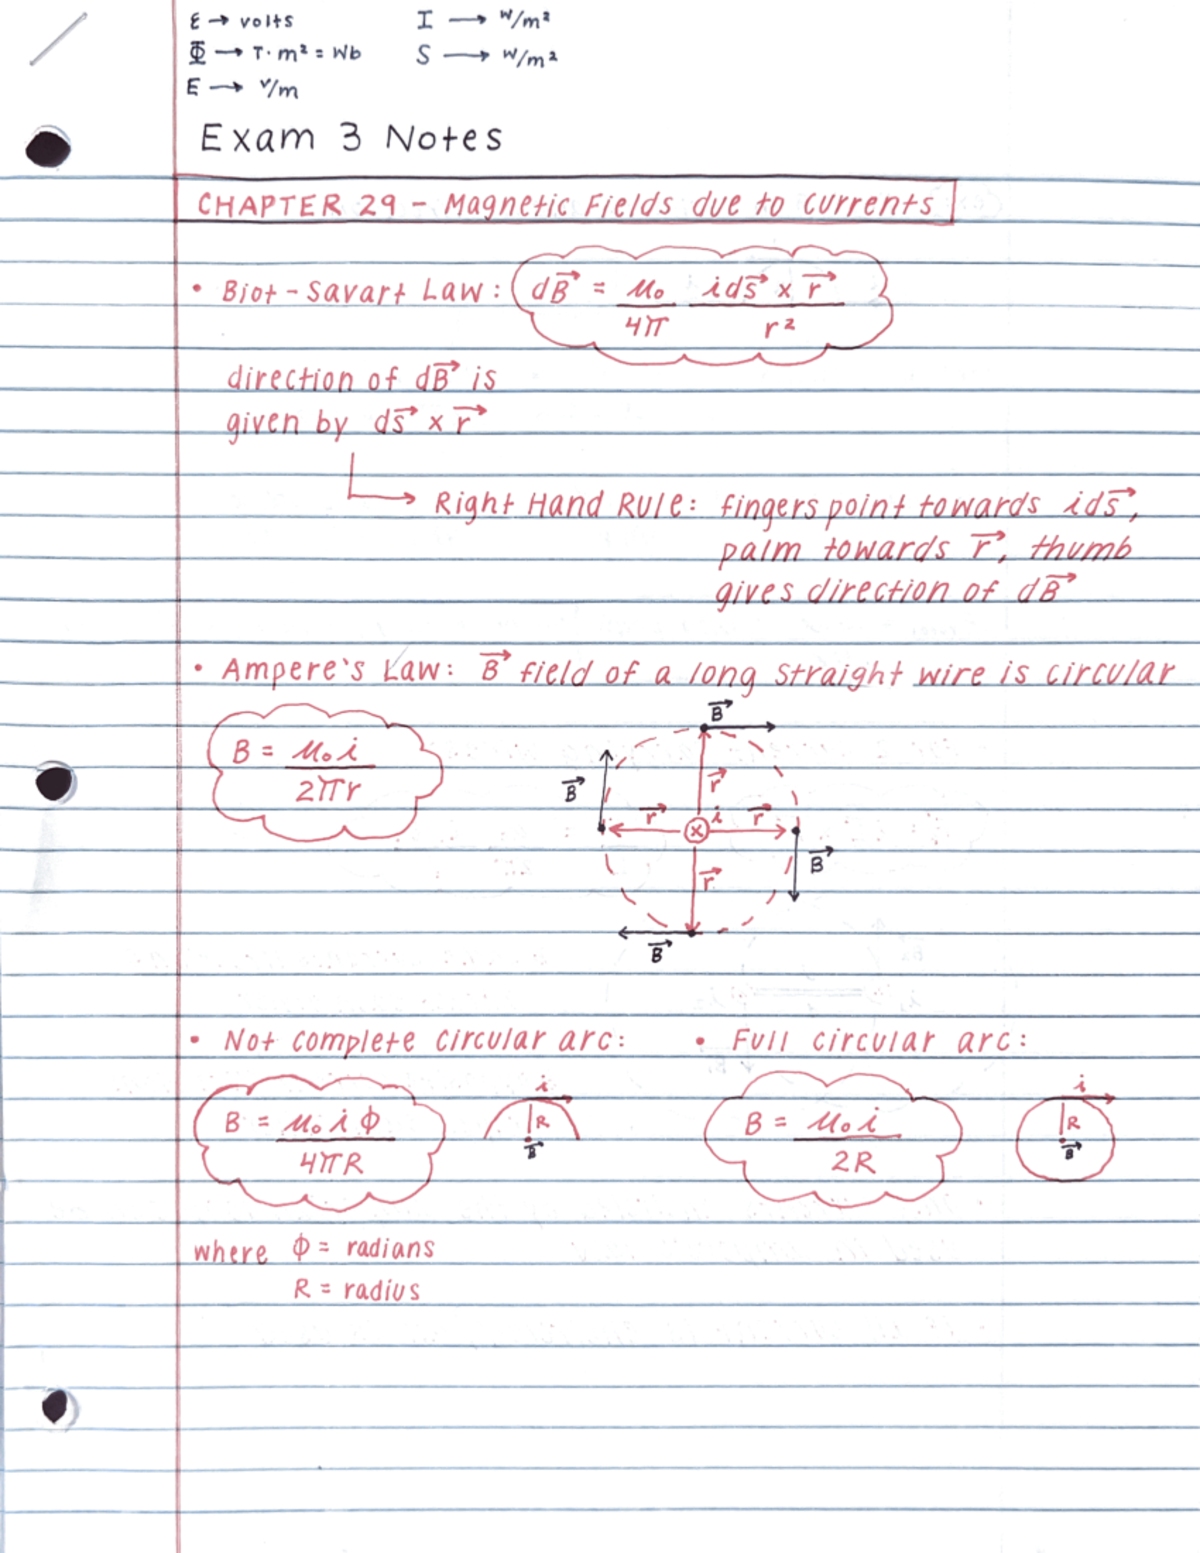 ε → volts I → W/m²
Φ → T·m² = Wb S → W/m²
E → V/m
Exam 3 Notes
CHAPTER 29 - Magnetic Fields due to currents
• Biot-Savart Law: dB⃗ = μ₀/4π ids⃗ x r⃗/r²
direction of dB⃗ is
given by ds⃗ x r⃗
Right Hand Rule: fingers point towards ids⃗,
palm towards r⃗, thumb
gives direction of dB⃗
• Ampere's Law: B⃗ field of a long straight wire is circular
B = μ₀i/2πr
B⃗
B⃗ r⃗
r⃗ i r⃗
r⃗ B⃗
B⃗
• Not complete circular arc: • Full circular arc:
B = μ₀iΦ/4πR i R B⃗ B = μ₀i/2R i R B⃗
where Φ = radians
R = radius